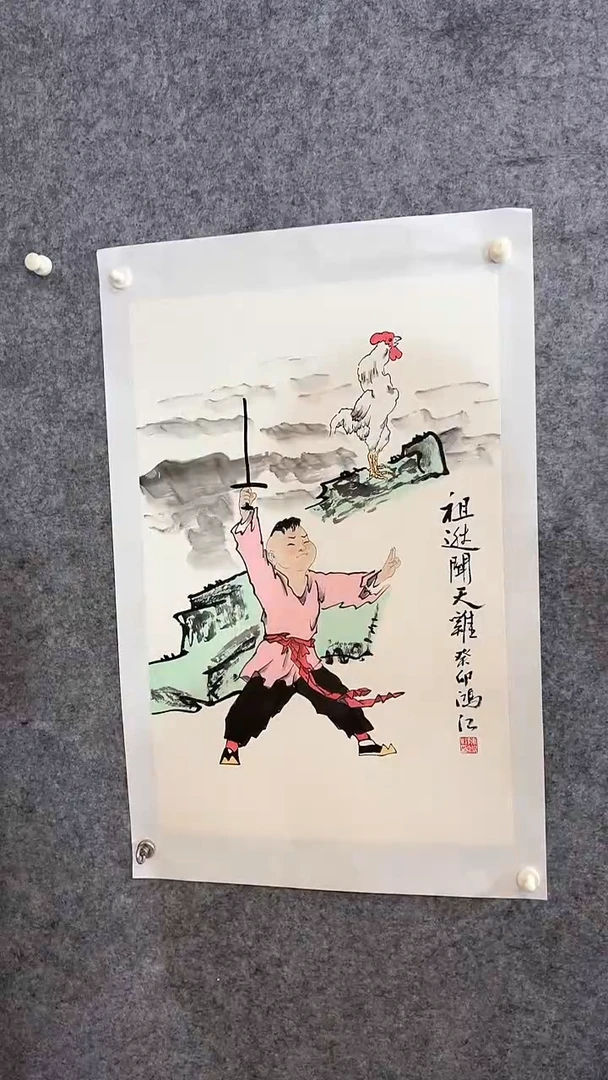 祖逖聞天雞 癸卯鸿江